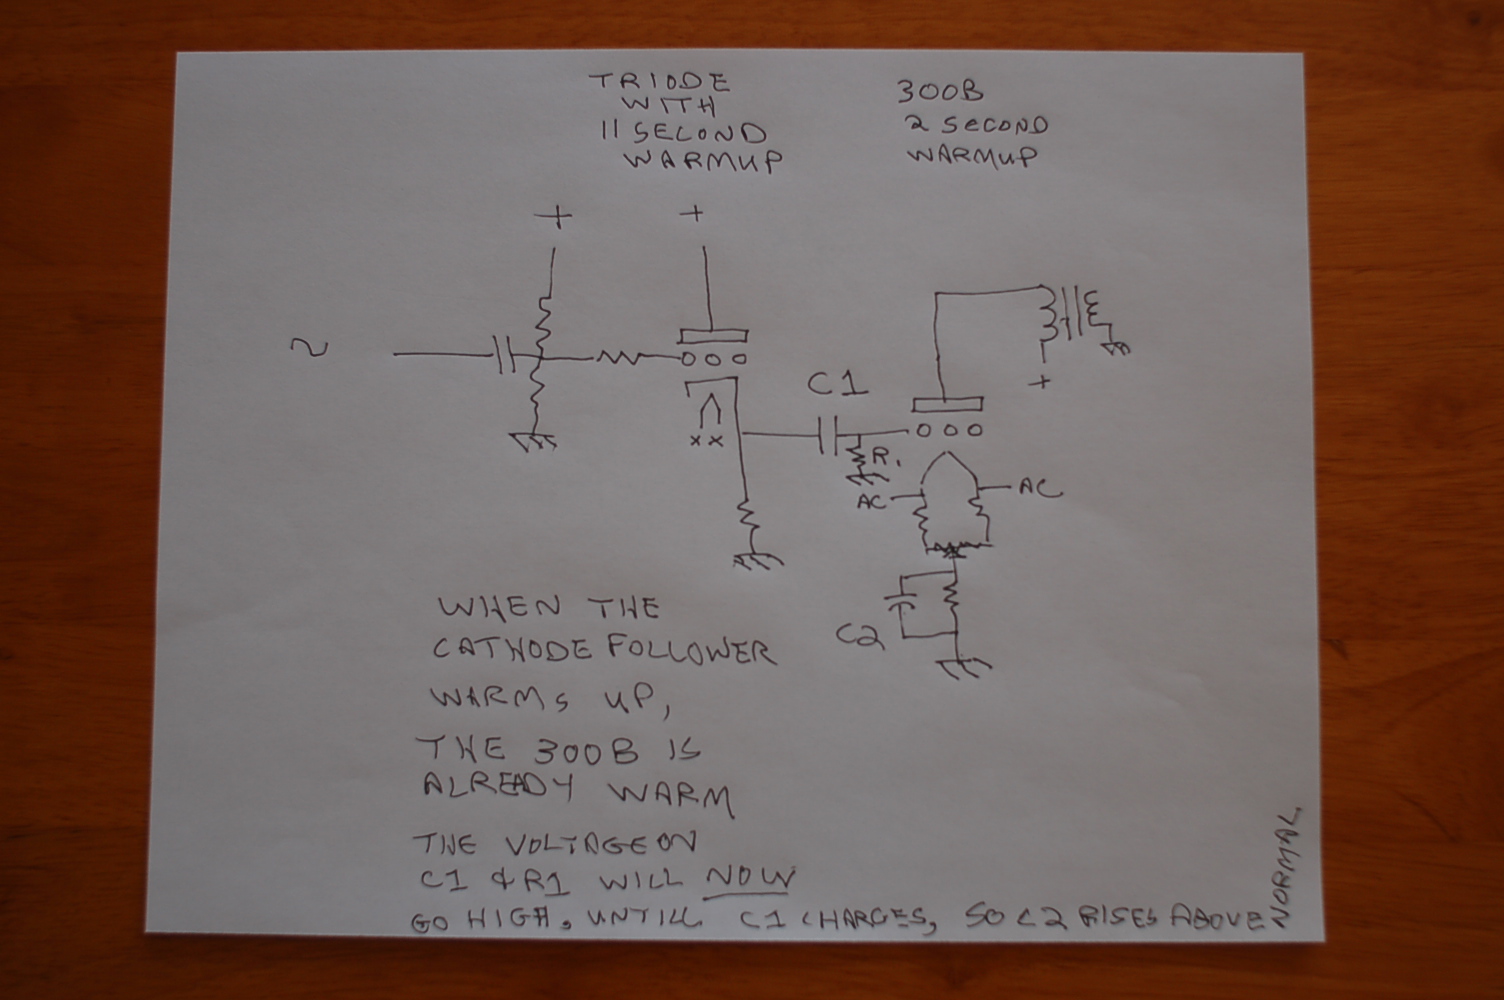 TRIODE
WITH
11 SECOND
WARMUP
300B
2 SECOND
WARMUP
+ +
~
C1
+
R.
x x
AC AC
C2
WHEN THE
CATHODE FOLLOWER
WARMS UP,
THE 300B IS
ALREADY WARM
THE VOLTAGE ON
C1 & R1 WILL NOW
GO HIGH. UNTILL C1 CHARGES, SO C2 RISES ABOVE NORMAL